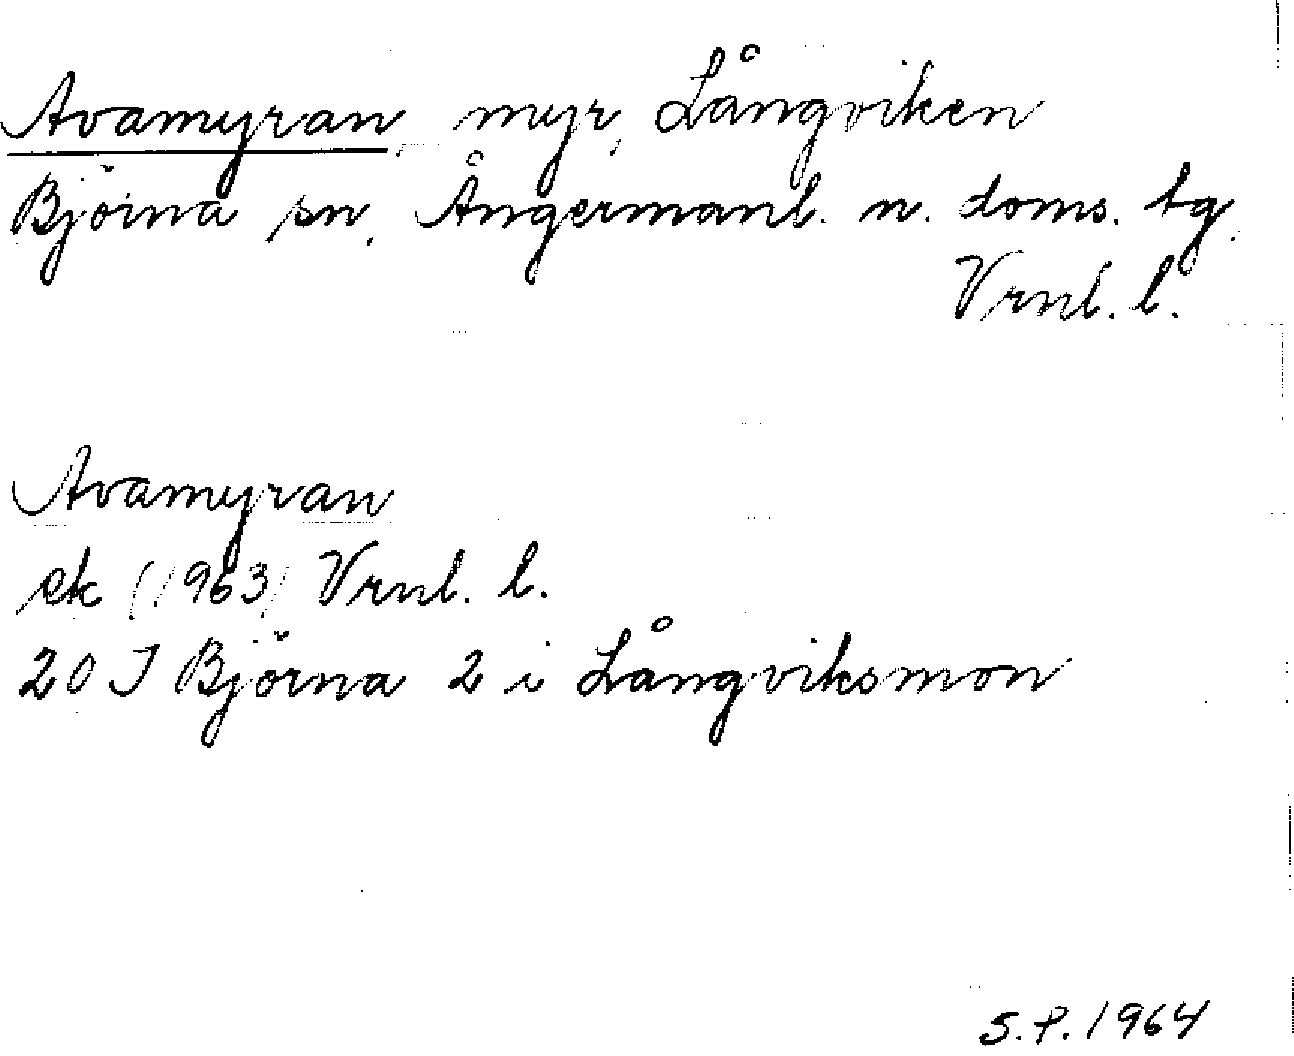 Avamyran, myr, Långviken
Björna sn, Ångermanl. n. doms. tg.
Vrnl. l.
Avamyran
ek (1963) Vrnl. l.
20 J Björna 2 i Långviksmon
S.P. 1964